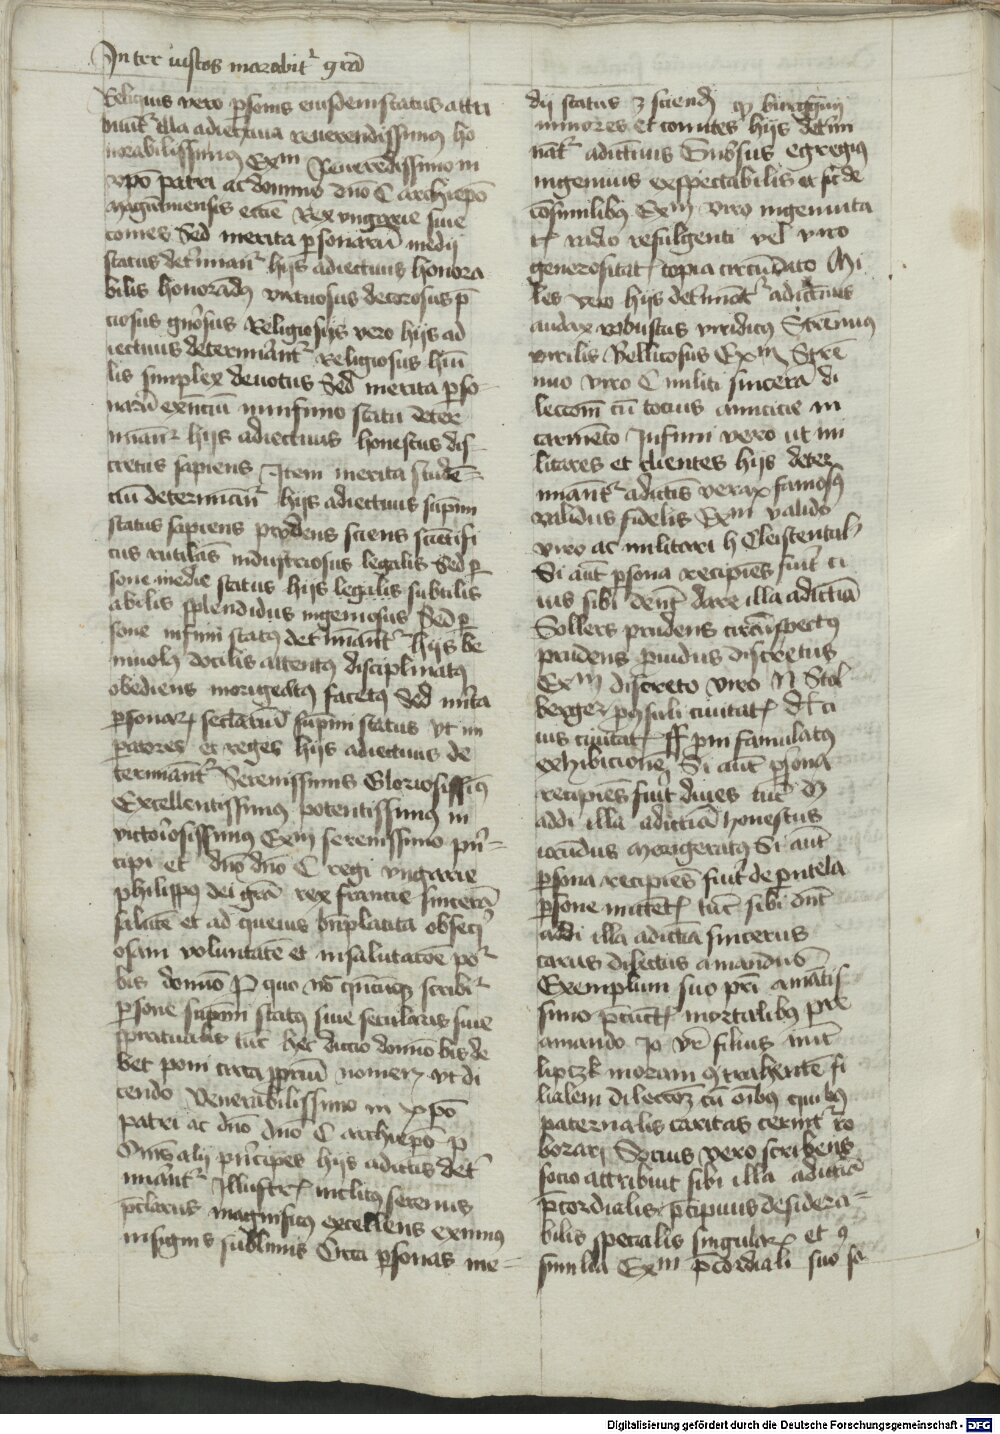 Inter iustos morabit᷑ grā
Reliquis vero ꝑsonis eiusdem status attri
buūt᷑ illa adiectiua reuerendissimꝯ ho
norabilissimꝯ Exm Reueredissimo in
xpō patri ac domino dno C archiepō
magūtinensis eccie Rex vngarie siue
comes Sed merita ꝑsonarū medij
status det᷑mināt᷑ hijs adiectiuis honora
bilis honorādꝯ virtuosus decorosus p̄
ciosus gn̄osus Religiosijs vero hijs ad
iectiuis determinant᷑ Religiosus hūi
lis simplex deuotus Sed merita ꝑso-
narū exn̄ciū in infimo statu deter
minant᷑ hijs adiectiuis honestus dis-
cretus sapiens Item merita studē=
ciū determināt᷑ hijs adiectiuis supmi
status sapiens prudens sciens sciētifi
cus rutilās industriosus legalis Sed ꝑ
sone medie status hijs legalis subtilis
abilis splendidus ingeniosus Sed ꝑ
sone infimi statꝯ det᷑minant᷑ hijs be
niuolꝯ docilis attentꝯ disciplinatꝯ
obediens morigeratꝯ facetꝯ Sed mīta
ꝑsonarꝝ seclariū supmi status vt im
ꝑatores et reges hijs adiectiuis de
termināt᷑ Serenissimus Gloriosissimꝯ
Excellentissimꝯ potentissimꝯ in
victoriosissimꝯ Exm serenissimo prī-
cipi et dno dno C regi vngarie
philippꝯ dei grā rex francie sincerā
salutē et ad queuis bn̄placita obseq̄
osam voluntatē et in salutatōe po᷑
bis domino P quo nō qn̄cūqꝫ scribit᷑
ꝑsone supmi statꝯ siue secularis siue
spiritualis tūc hec dictio domino bis de
bet poni circa ꝓpriū nomen vt di
cendo Venerabilissimo in xpō
patri ac dno dno C archiepō p
Om̄s alij prīcipes hijs adictiīs det᷑
minant᷑ Illustris inclitꝯ serenus
p̄clarus magnificꝯ excellens eximius
insignis sublimis Circa ꝑsonas me=
dij status ꝫ sciendū ꝙ burggrauij
minores et comites hijs det᷑mi
nāt᷑ adictiuis Gn̄osus egregiꝯ
ingenuus exspectabilis et sic de
cōsimilibꝯ Exm viro ingenuita
tꝭ radio refulgenti vel viro
generositatꝭ copia circūdato Mi
les vero hijs det᷑mināt᷑ adictiuis
audax robustus viridicꝯ Strēnuus
virilis Bellicosus Exm Strē
nuo viro C militi sincera di
lectōm cū tocius amicicie in
cremēto Infimi vero ut mi
litares et clientes hijs deter
minant᷑ adictiīs verax famosꝯ
validus fidelis Exm valido
viro ac militari h Cleistental
Si aūt ꝑsona recipiēs fuīt ci
uis sibi debēt dare illa adictiua
Sollers prudens circūspectꝯ
prudens ꝓuidus discretus
Exm discreto viro N Stol
berger ꝓconsuli ciuitatꝭ dc̄i ci
uis ciuitatꝭ ff p̄m famulatꝯ
exhibicione Si aūt ꝑsona
recipiēs fuīt diues tūc dꝫ
addi illa adictiua honestus
iocūdus morigeratꝯ Si aūt
ꝑsona recipiēs fuīt de ꝑentela
ꝑsone mittētꝭ tūc sibi dn̄t
addi illa adictiua sincerus
carus dilectus amandus
Exemplum suo pri amātis
simo p̄ cūctꝭ mortalibꝯ pre
amando Jo vr̄ filius nūc
liptzk moram ꝯtrahentē fi
lialem dilectōꝫ cū oībꝯ quibꝯ
paternalis caritas cernit᷑ ro
borari Socius vero scribens
socio attribuit sibi illa adictiua
p̄cordialis p̄cipuus desidera-
bilis specialis singularꝭ et ꝯ
similia Exm p̄cordiali suo so
Digitalisierung gefördert durch die Deutsche Forschungsgemeinschaft - DFG